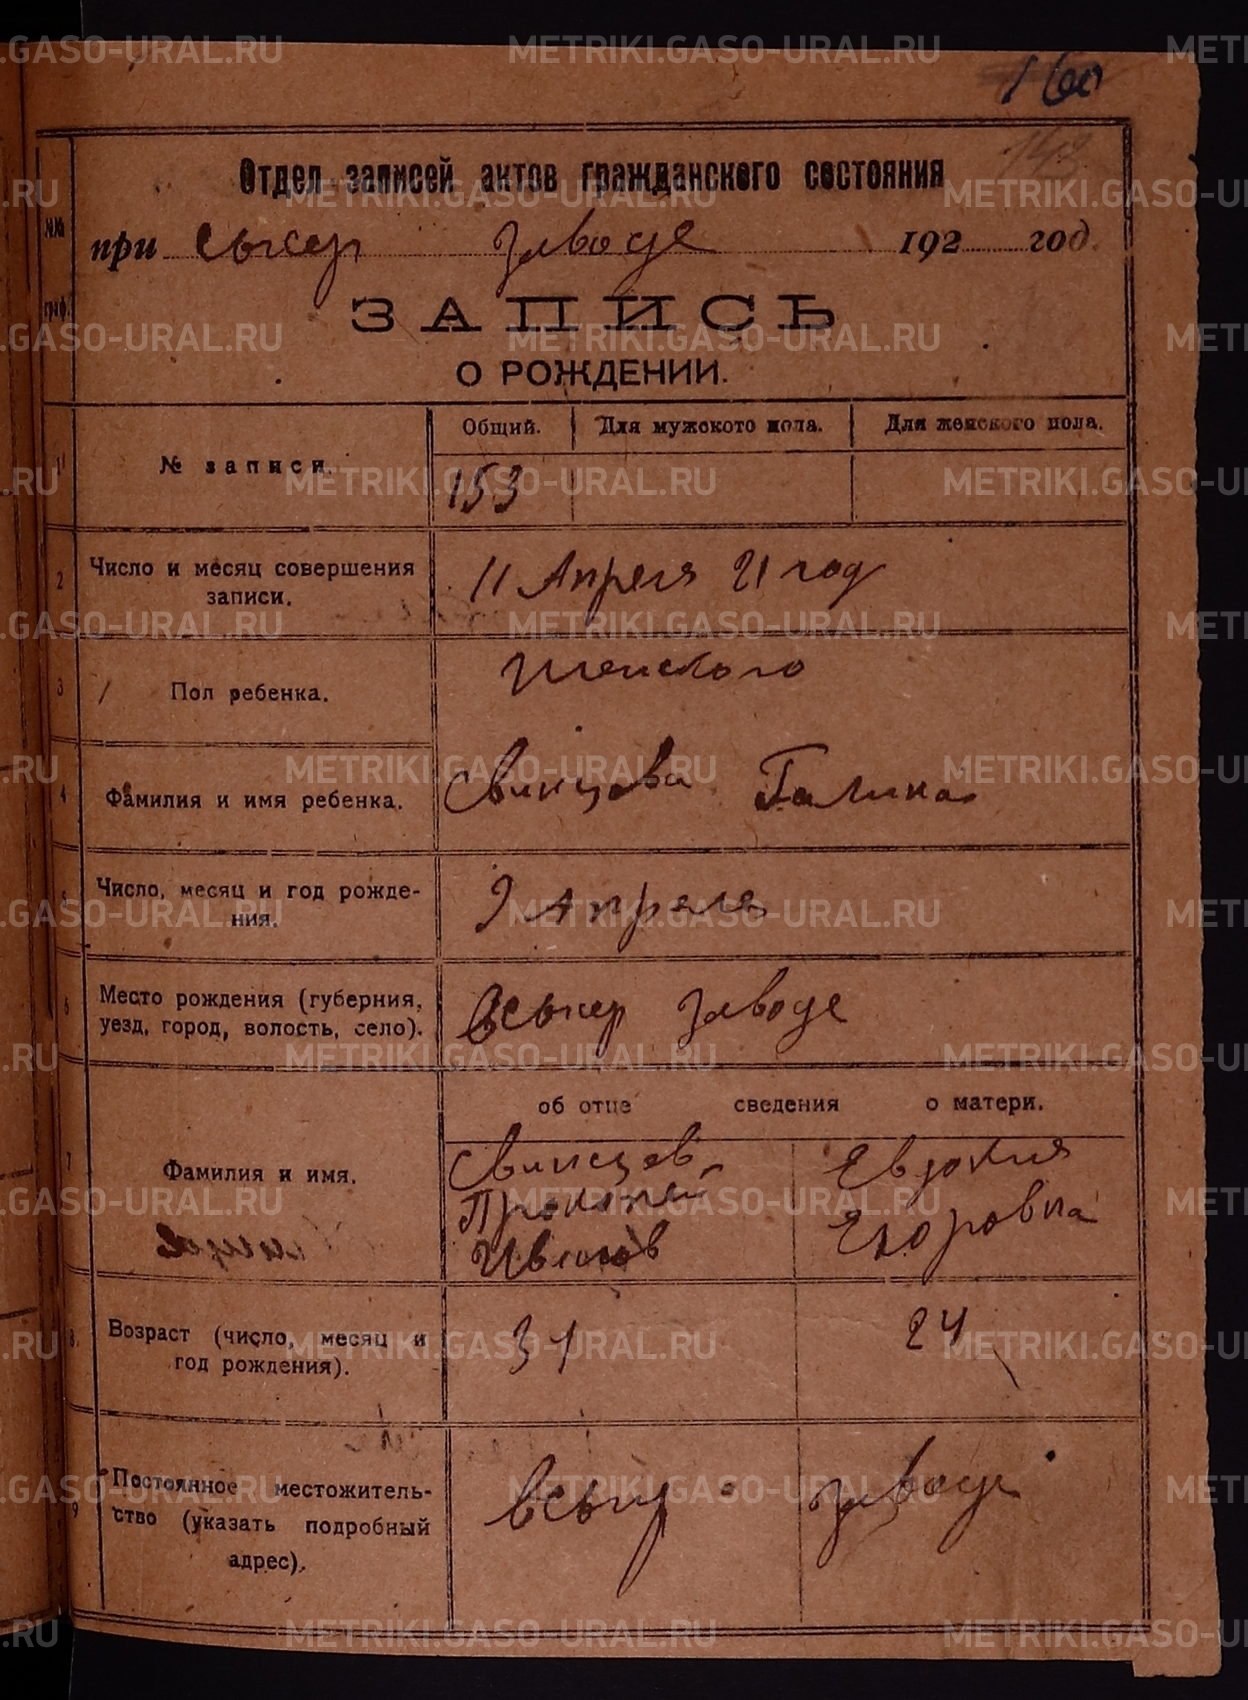 160
143
Отдел записей актов гражданского состояния
№№
граф.
при Сысер заводе 192 год.
ЗАПИСЬ
О РОЖДЕНИИ.
1 № записи. Общий. Для мужского пола. Для женского пола.
153
2 Число и месяц совершения
записи.
11 Апреля 21 год
3 Пол ребенка.
Женского
4 Фамилия и имя ребенка.
Свинцова Галина
5 Число, месяц и год рожде-
ния.
9 Апреля
6 Место рождения (губерния,
уезд, город, волость, село).
Всысер заводе
об отце сведения о матери.
7 Фамилия и имя.
Свинцов
Прокопей
Иванов
Евдокия
Егоровна
8. Возраст (число, месяц и
год рождения).
31 24
9 Постоянное местожитель-
ство (указать подробный
адрес).
Всысер заводе
METRIKI.GASO-URAL.RU